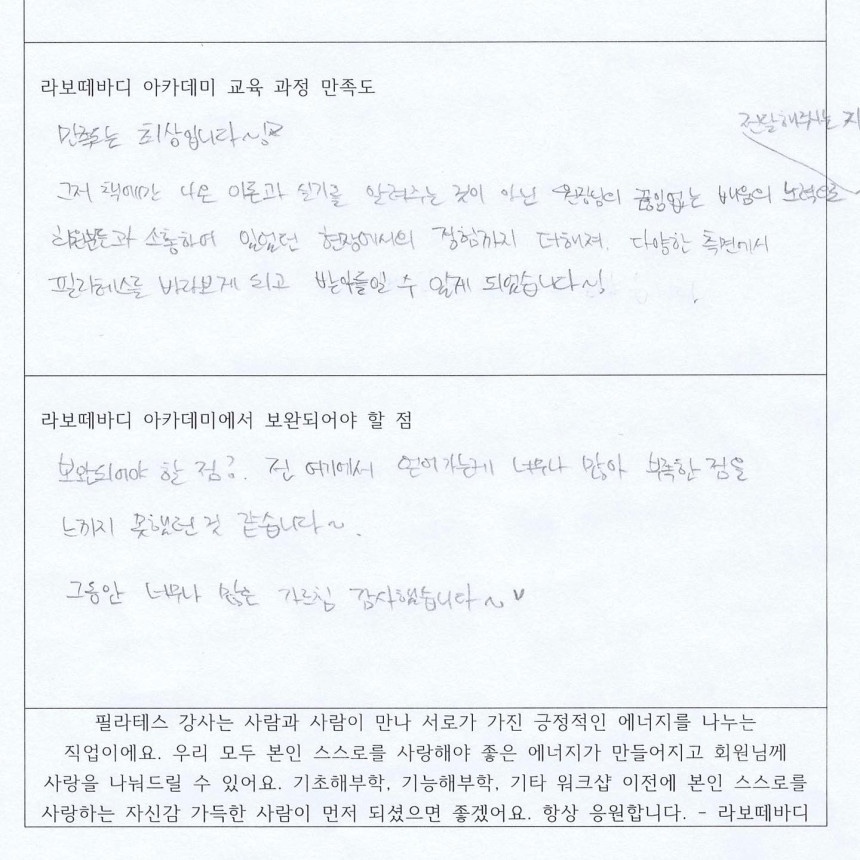 라보떼바디 아카데미 교육 과정 만족도
만족도는 최상입니다~!
전달해주는 지
그저 책에만 나온 이론과 실기를 알려주는 것이 아닌 원장님의 끊임없는 배움의 노력으로
회원분들과 소통하며 있었던 현장에서의 경험까지 더해져. 다양한 측면에서
필라테스를 바라보게 되고 받아들일 수 있게 되었습니다~!
라보떼바디 아카데미에서 보완되어야 할 점
보완되어야 할 점?. 전 여기에서 얻어가는게 너무나 많아 부족한 점을
느끼지 못했던 것 같습니다~.
그동안 너무나 많은 가르침 감사했습니다~♥
필라테스 강사는 사람과 사람이 만나 서로가 가진 긍정적인 에너지를 나누는
직업이에요. 우리 모두 본인 스스로를 사랑해야 좋은 에너지가 만들어지고 회원님께
사랑을 나눠드릴 수 있어요. 기초해부학, 기능해부학, 기타 워크샵 이전에 본인 스스로를
사랑하는 자신감 가득한 사람이 먼저 되셨으면 좋겠어요. 항상 응원합니다. - 라보떼바디